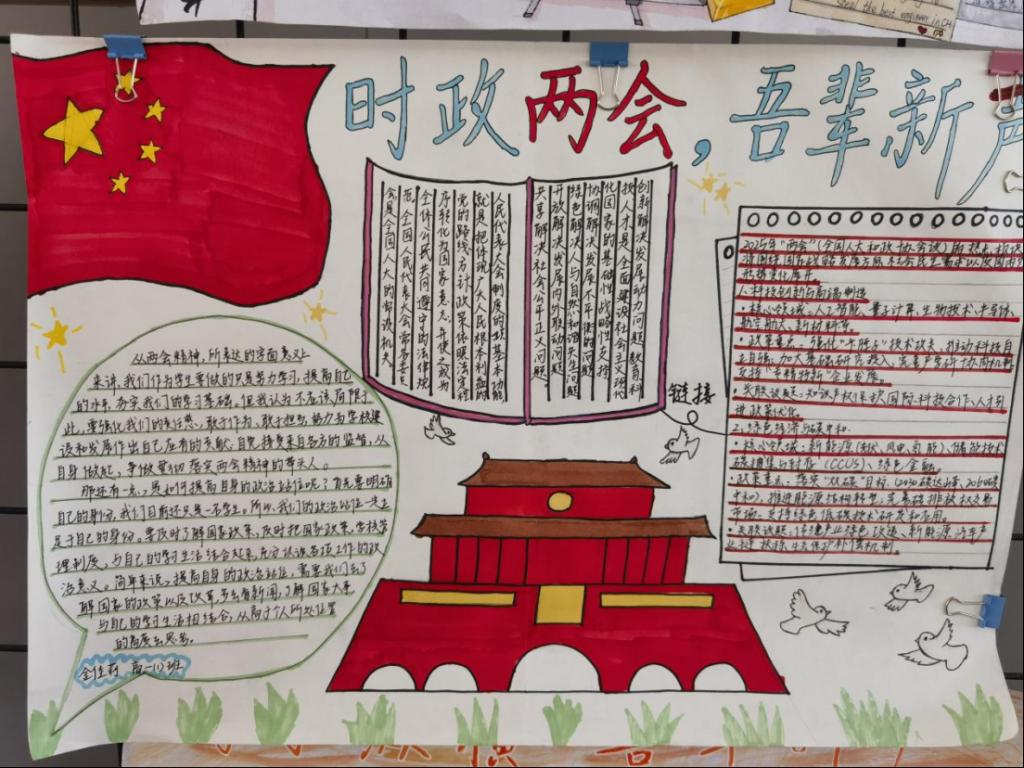 时政两会,吾辈新声
创新解决发展动力问题,教育科
技人才是全面建设社会主义现代
化国家的基础性战略性支撑
协调解决发展不平衡的问题
绿色解决人与自然和谐共生问题
开放解决发展内外联动问题
共享解决社会公平正义问题
人民代表大会制度的政基本功能
就是把体现广大人民根本利益的
党的路线、方针政策依照法定程
序转化为国家意志,并使之成为
全体公民共同遵守的法律规
范。全国人民代表大会常务委员
会是全国人大的常设机关。
链接
从两会精神,所表达的字面意义上
来讲,我们作为学生要做的只是努力学习,提高自己
的水平,夯实我们的学习基础。但我认为不应该局限于
此,要强化我们的责任感,敢于作为,敢于担当,努力为学校建
设和发展作出自己应有的贡献,自觉接受来自各方的监督,从
自身做起,争做贯彻落实两会精神的带头人。
那还有一点,是如何提高自身的政治站位呢?首先要明确
自己的身份,我们目前还只是一名学生。所以,我们的政治站位一定立
足于自己的身份。要及时了解国家政策,及时把国家政策、学校管
理制度,与自己的学习生活结合起来,充分认识各项工作的政
治意义。简单来说,提高自身的政治站位,需要我们去了
解国家的政策以及改革,多去看新闻,了解国家大事
与自己的学习生活相结合,从高于个人所处位置
的高度去思考。
高一(1)班
2025年"两会"(全国人大和政协会议)
形势变化展开
1.科技创新与高端制造
·核心领域:人工智能、量子计算、生物技术、半导体、
航空航天、新材料等。
·政策重点:强化"卡脖子"技术攻关,推动科技自
立自强;加大基础研究投入,完善产学研协同机制
支持"专精特新"企业发展。
·关联议题:知识产权保护、国际科技合作、人才引
进政策优化。
2.绿色经济与碳中和
·核心领域:新能源(核、风电、氢能)、储能技术
碳捕集与封存(CCUS)、绿色金融。
·政策重点:落实"双碳"目标(2030碳达峰、2060碳
中和),推进能源结构转型;完善碳排放权交易
市场;支持绿色低碳技术研发和应用。